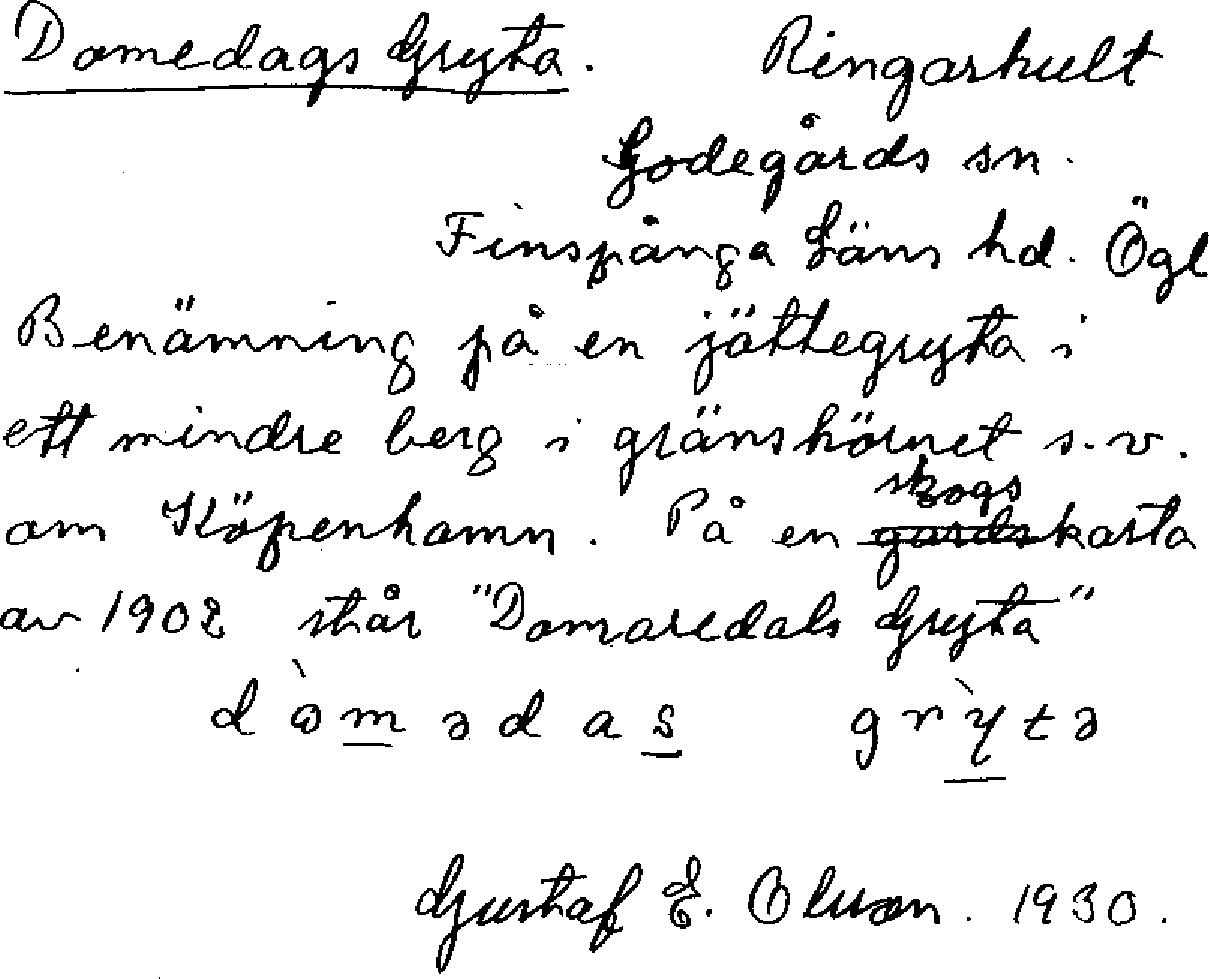 Domedags Gryta. Ringarhult
Godegårds sn.
Finspånga Läns hd. Ögl
Benämning på en jättegryta i
ett mindre berg i gränshörnet s.v.
om Köpenhamn. På en skogskarta
av 1902 står "Domaredals Gryta"
d ò m ə d a s g r ỳ t ə
Gustaf E. Olsson. 1930.